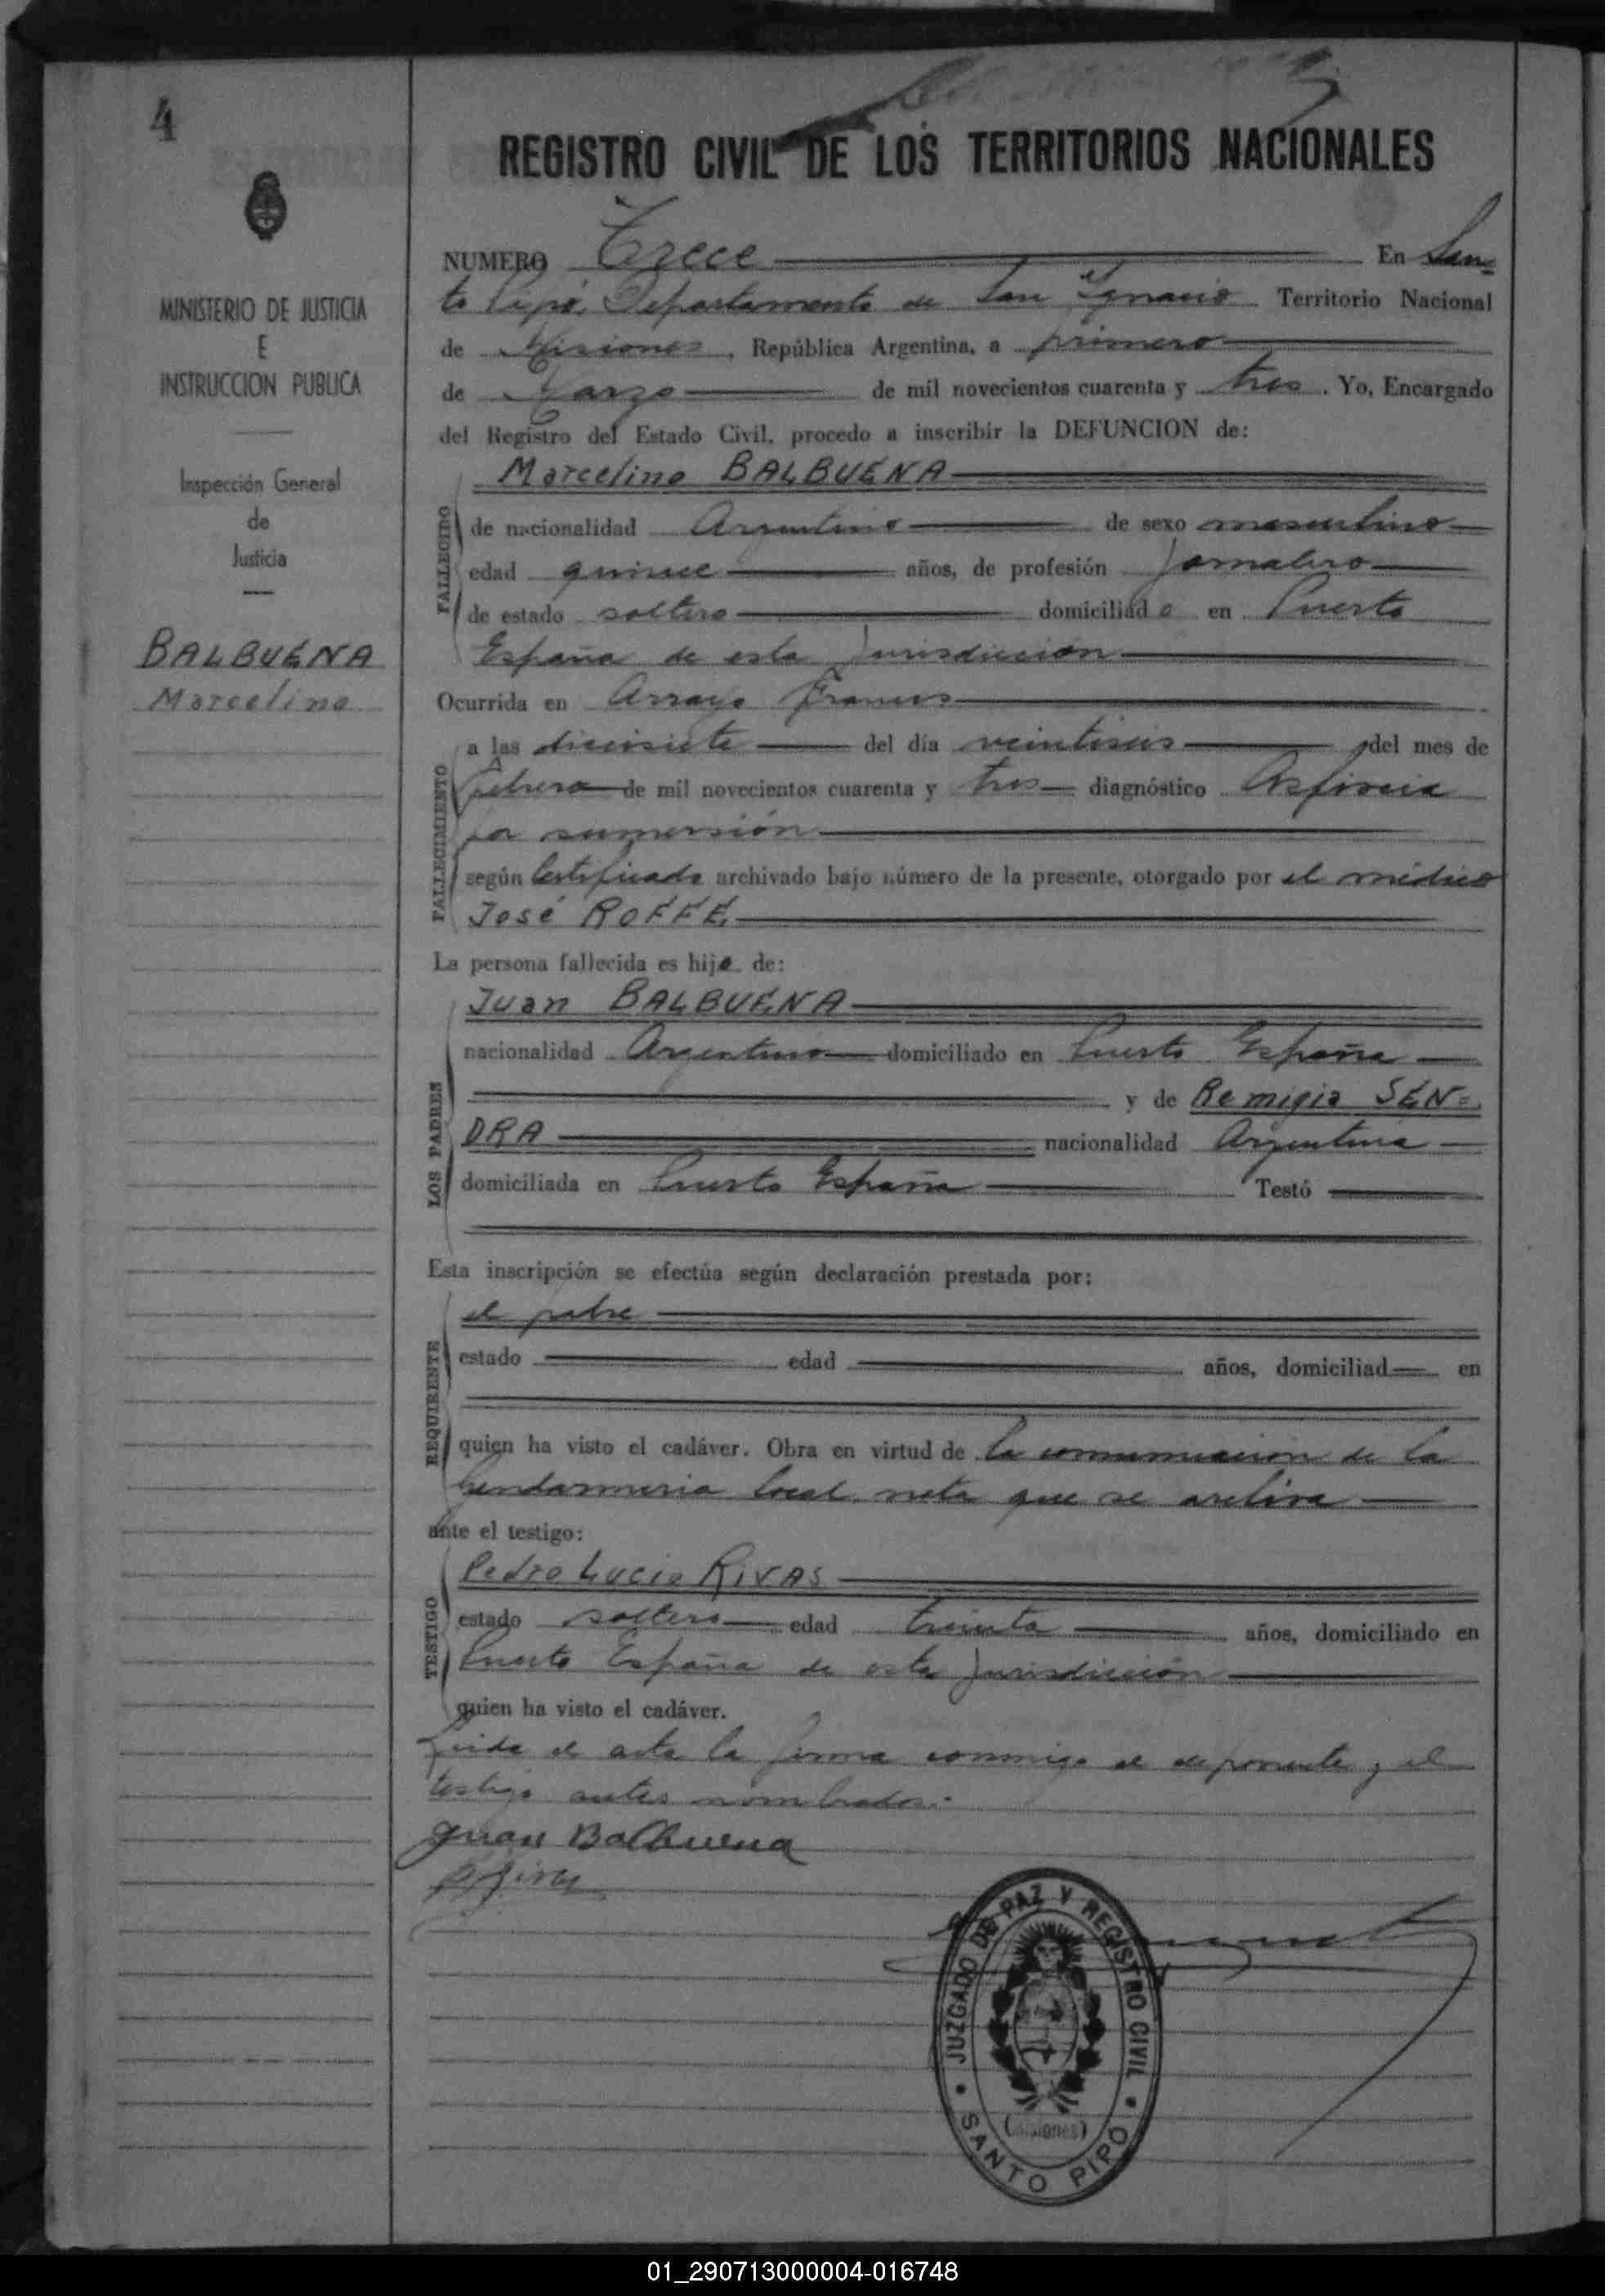 4
REGISTRO CIVIL DE LOS TERRITORIOS NACIONALES
MINISTERIO DE JUSTICIA
E
INSTRUCCION PUBLICA
Inspección General
de
Justicia
BALBUENA
Marcelino
NUMERO Trece En San=
to Pipó, Departamento de San Ignacio Territorio Nacional
de Misiones, República Argentina, a primero
de Marzo de mil novecientos cuarenta y tres. Yo, Encargado
del Registro del Estado Civil, procedo a inscribir la DEFUNCION de:
Marcelino BALBUENA
FALLECIDO
de nacionalidad Argentino de sexo masculino
edad quince años, de profesión Jornalero
de estado soltero domiciliado en Puerto
España de esta Jurisdicción
Ocurrida en Arroyo
FALLECIMIENTO
a las diecisiete del día veintiseis del mes de
febrero de mil novecientos cuarenta y tres diagnóstico Asfixia
por sumersión
según Certificado archivado bajo número de la presente, otorgado por el médico
José ROFFE.
La persona fallecida es hijo de:
LOS PADRES
Juan BALBUENA
nacionalidad Argentino domiciliado en Puerto España
y de Remigia SEN=
DRA nacionalidad Argentina
domiciliada en Puerto España Testó
Esta inscripción se efectúa según declaración prestada por:
REQUIRENTE
el padre
estado edad años, domiciliad en
quien ha visto el cadáver. Obra en virtud de la comunicacion de la
Gendarmeria local, nota que se archiva
ante el testigo:
TESTIGO
Pedro Lucio RIVAS
estado soltero edad treinta años, domiciliado en
Puerto España de esta Jurisdicción
quien ha visto el cadáver.
Leida el acta la firma conmigo el deponente y el
testigo antes nombrados.-
Juan Balbuena
JUZGADO DE PAZ Y REGISTRO CIVIL
(Misiones)
SANTO PIPÓ
01_290713000004-016748